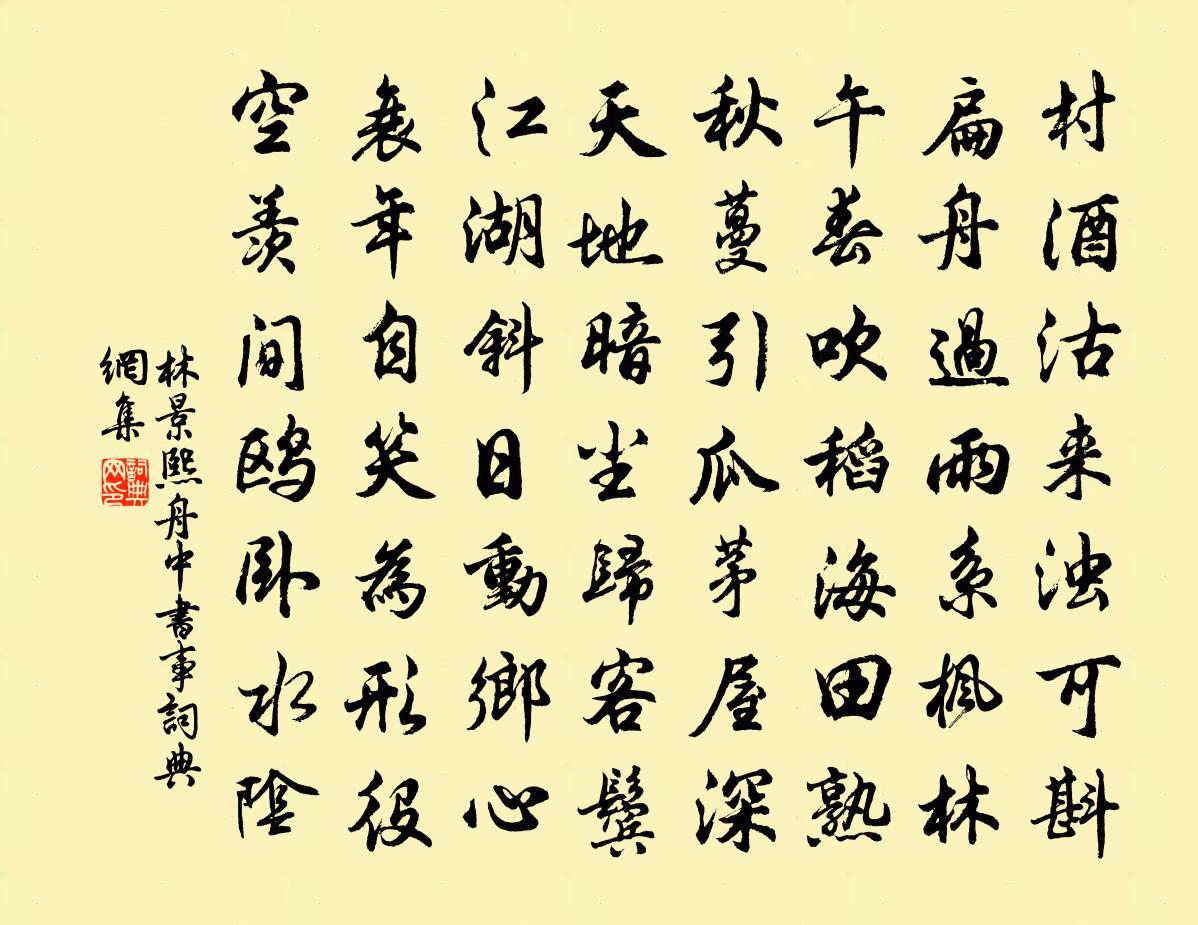 村酒沽来浊可斟
扁舟過雨系楓林
午舂吹稻海田熟
秋蔓引瓜茅屋深
天地暗尘歸客鬓
江湖斜日動鄉心
衰年自笑為形役
空羨间鸥卧水陰
林景熙舟中書事詞典
網集
詞典
网印